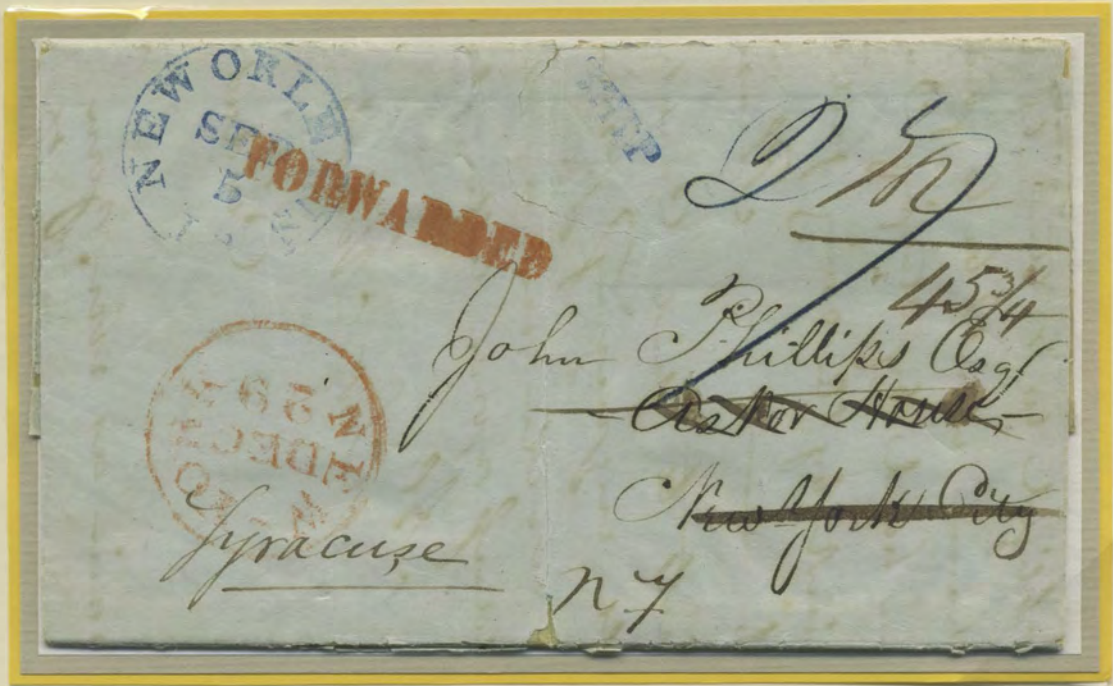 NEW ORLE
SEP
5
FORWARDED
SHIP
2
45 3/4
John Phillips Esqr
Astor House
New York City
NEW YORK
DEC
29
Syracuse
N Y